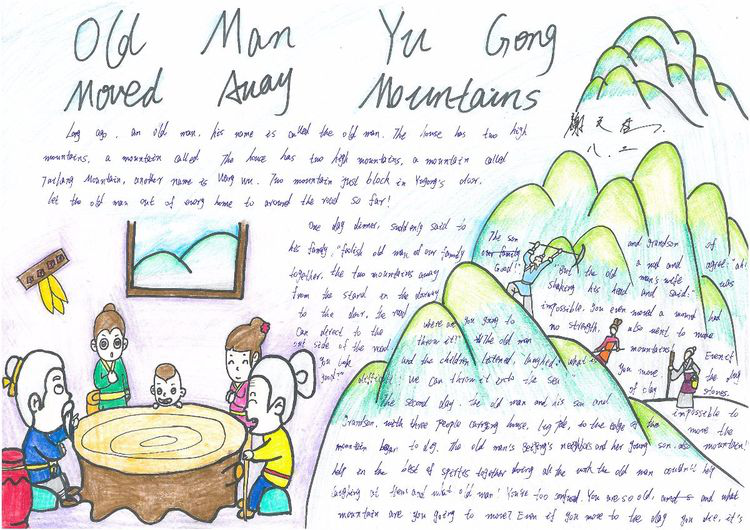 Old Man Yu Gong
Moved Away Mountains
谢天
八.二
Long ago, an old man, his name is called the old man. The house has two high
mountains, a mountain called The house has two high mountains, a mountain called
Taihang Mountain, another name is Wang wu. Two mountain just block in Yugong's door.
let the old man out of every home to around the road so far!
One day dinner, suddenly said to
his family, "foolish old man of our family
together, the two mountains away
from the stand in the doorway
to the door, the road
Can direct to the
out side of the road
The son and Grandson of
our family agree: "ah!
Good!"
"But the old man's wife was
shaking his head and said:
impossible. You even moved a mound had
no strength, also went to move
mountains Even if
you move the
of clay stones.
where are you going to
throw it?" The old man
and the children listened, laughed: what is
difficult! We can throw it into the sea
The second day, the old man and his son and
Grandson, with three people carrying hoes, to the edge of the
mountain began to dig. The old man's neighbors and her young son, also
help in the together doing all the with the old man couldn't help
laughing at them and what old man! You're too You are so old, and what
mountain are you going to move? Even if you move to the day you die, it's
impossible to
move the
mountain!